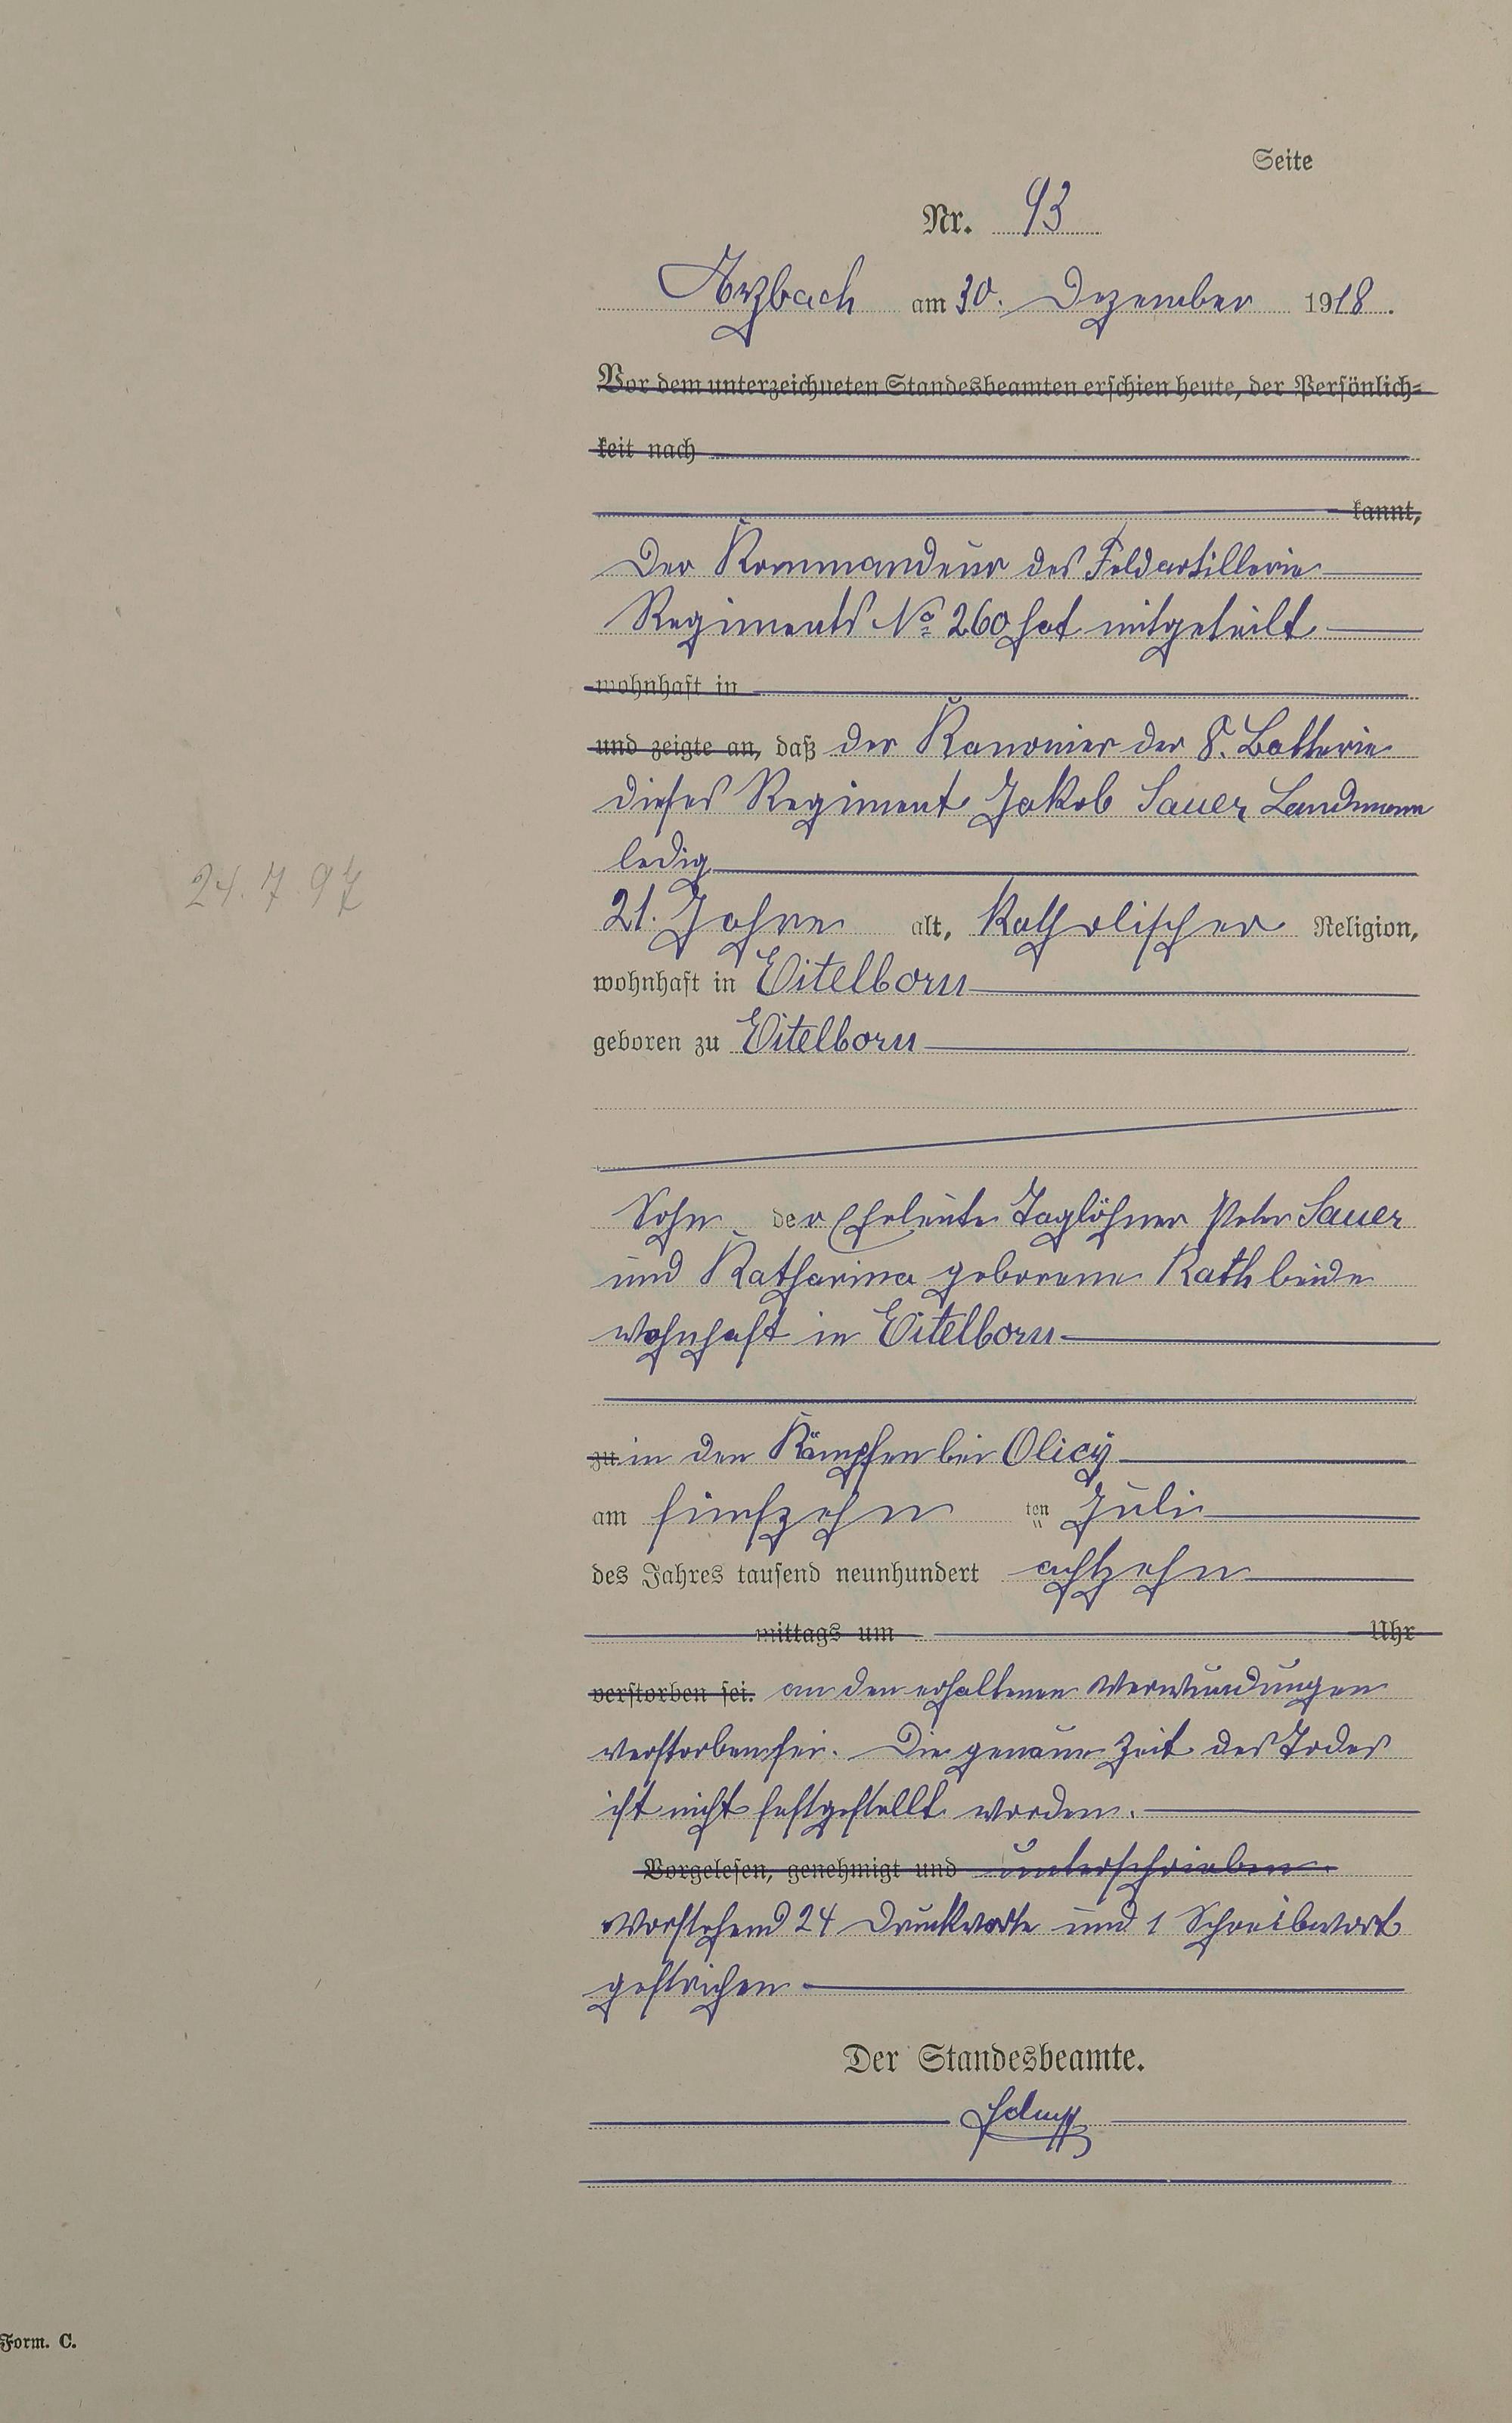 Seite
Nr. 93
Arzbach am 30. Dezember 1918.
Vor dem unterzeichneten Standesbeamten erschien heute, der Persönlich-
keit nach
kannt,
Der Kommandeur des Feldartillerie
Regiments No 260 hat mitgeteilt
wohnhaft in
und zeigte an, daß der Kanonier der 8. Batterie
dieses Regiment Jakob Sauer, Landmann
ledig
24.7.97
21. Jahre alt, katholischer Religion,
wohnhaft in Eitelborn
geboren zu Eitelborn
Sohn der Eheleute Taglöhner Peter Sauer
und Katharina geborene Rath beide
wohnhaft in Eitelborn
zu in den Kämpfen bei Olicy
am fünfzehn ten Juli
des Jahres tausend neunhundert achtzehn
mittags um Uhr
verstorben sei. an den erhaltenen Verwundungen
verstorben sei. Die genaue Zeit des Todes
ist nicht festgestellt worden.
Vorgelesen, genehmigt und unterschrieben.
Vorstehend 24 Druckworte und 1 Schreibwort
gestrichen
Der Standesbeamte.
Form. C.